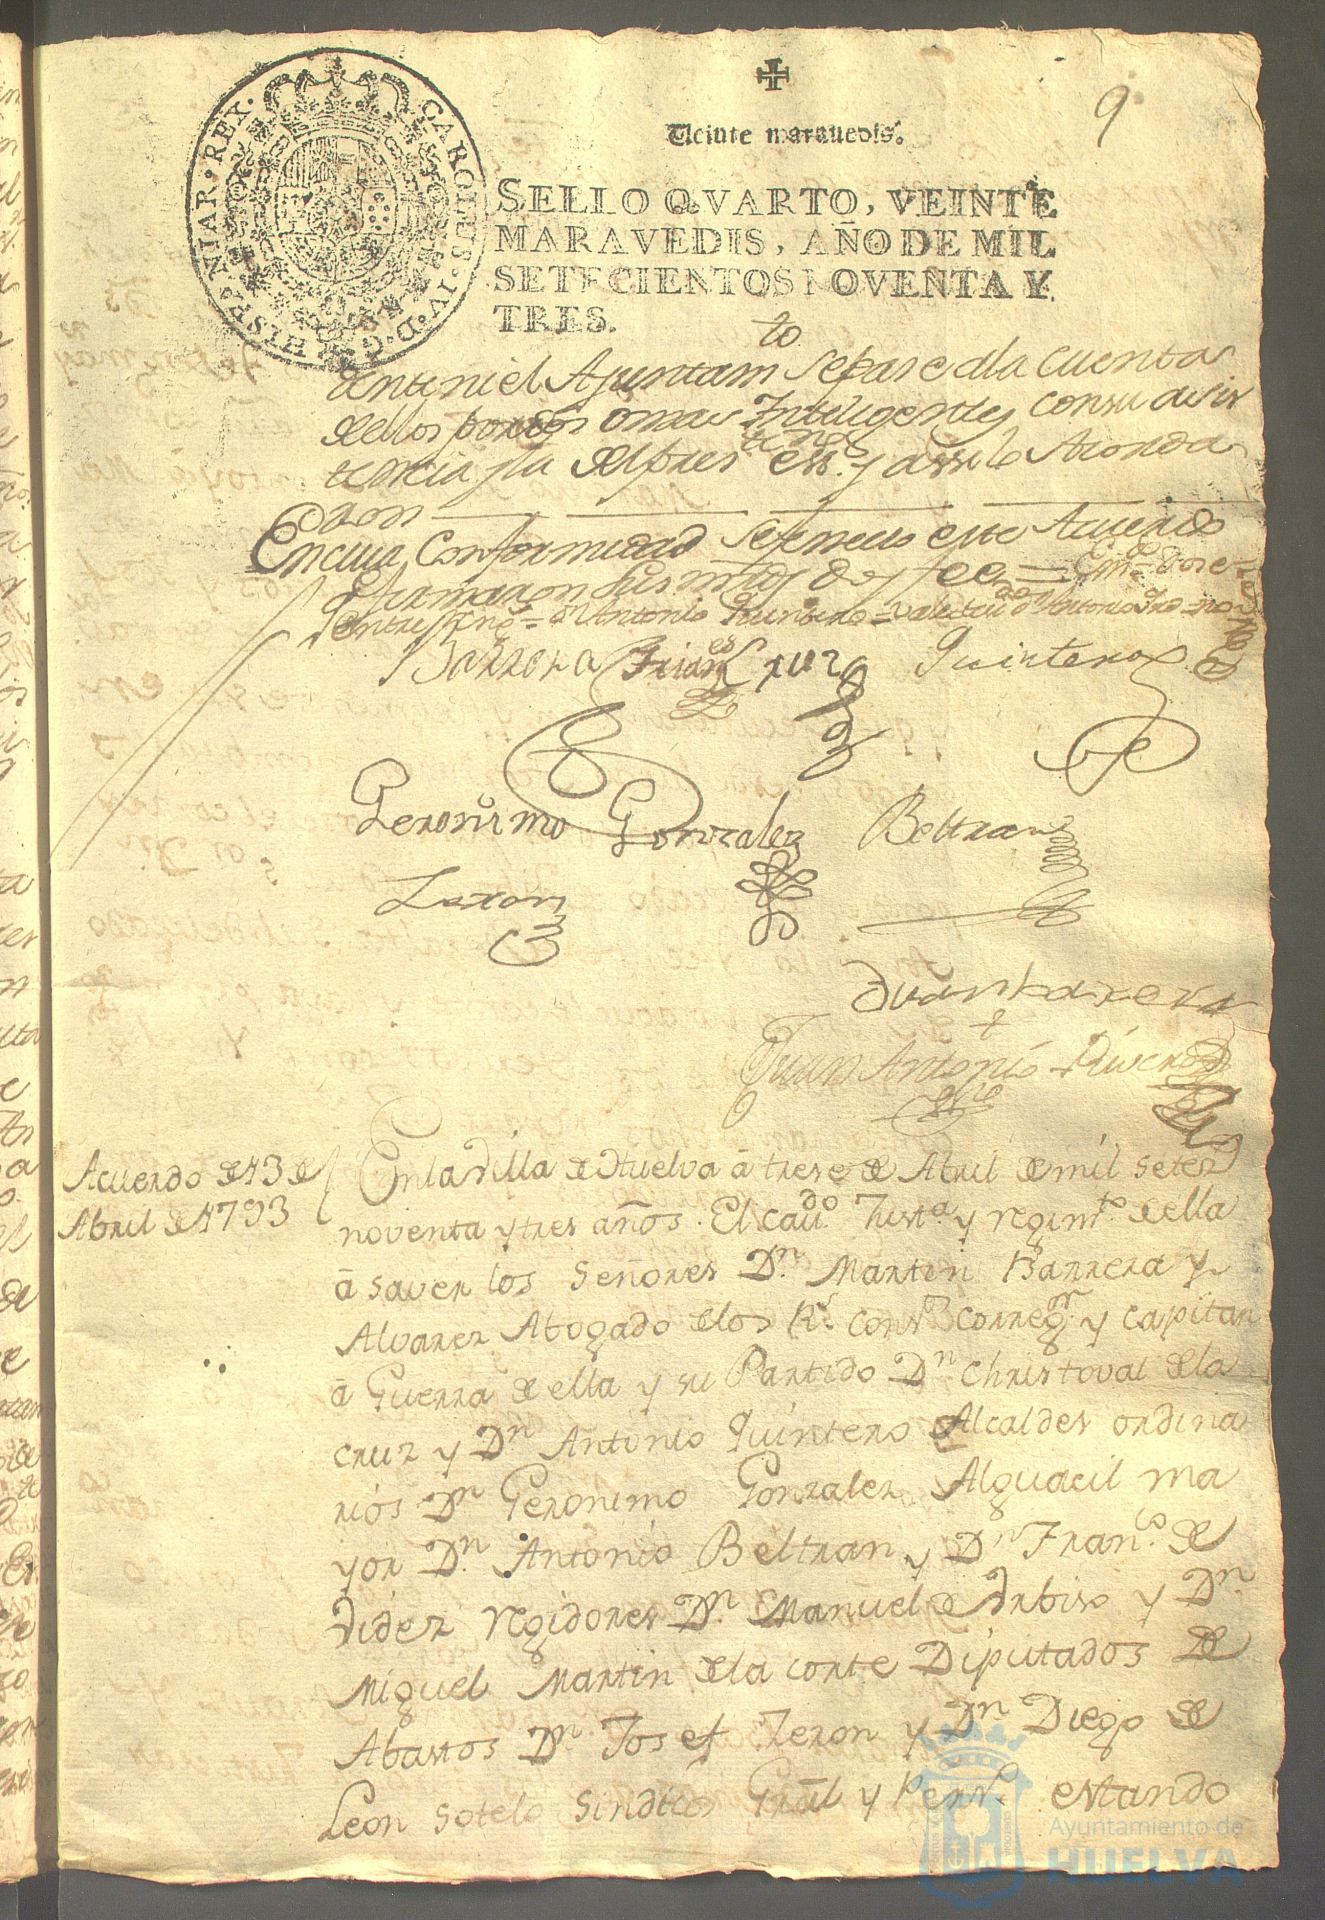 9
Veinte maravedis.
SELLO QVARTO, VEINTE
MARAVEDIS, AÑO DE MIL
SETECIENTOS NOVENTA Y
TRES.
CAROLUS · IV · D · G · HISPANIAR · REX ·
el Ajuntam to se pase a la Cuenta
de ellos por dos o mas Inteligentes con su asis
tencia y la del pres te esno y assi lo Acorda
ron
En cuia Conformidad se fenecio este Acuerdo
q firmaron sus mrds doy fee =
Dn Antonio Quintero =
Barrera
Cruz
Quintero
Geronimo Gonzalez
Beltran
Leron
Juan barrera
Juan Antonio Rivero
Acuerdo de 13 de
Abril de 1793
En la Villa de Huelva â trese de Abril de mil setez
noventa y tres años. El cavdo Justa y regimto de ella
â saver los Señores Dn. Martin Barrera y
Alvarez Abogado de los Rs. conss correg.or y capitan
â Guerra de ella y su Partido Dn Christoval de la
Cruz y Dn Antonio Quintero Alcaldes ordina
rios Dn Geronimo Gonzalez Alguacil ma
yor Dn Antonio Beltran y Dn Franco. de
Videz regidores Dn. Manuel de Arbiso y Dn
Miguel Martin de la corte Diputados de
Abastos Dn Josef Jeron y Dn Diego de
Leon Sotelo Sindicos Grâl y Persro. estando
Ayuntamiento de
HUELVA